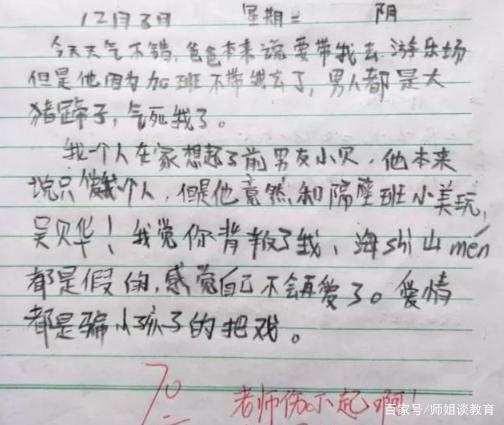 12月3日 星期二 阴
今天天气不错，爸爸本来说要带我去游乐场
但是他因为加班不带我去了，男人都是大
猪蹄子，气死我了。
我一个人在家想起了前男友小贝，他本来
说只爱我个人，但是他竟然和隔壁班小美玩，
吴贝华！我觉你背叛了我、海shi山mén
都是假的，感觉自己不会再爱了。爱情
都是骗小孩子的把戏。
70 老师伤不起啊！
百家号/师姐谈教育